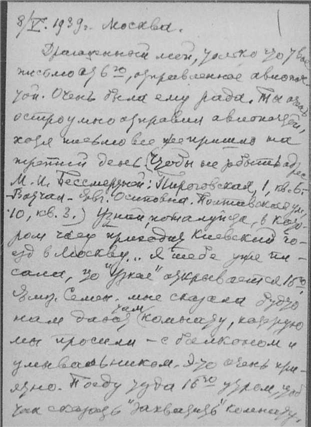 8/V. 1939 г. Москва.
Драгоценный мой, только что
письмо от 6го, отправленное авиопоч-
той. Очень была ему рада. Ты очень
остроумно отправил авиопочтой,
хотя письмо все же пришло на
третий день. Чтобы не
М. И. Бессмертной: Пироговская, 1, кв. 6.
Осиповна. Полтавская ул.
10, кв. 3.) Узнай, пожалуйста, в кото-
ром часу приходит Киевский по-
езд в Москву... Я тебе уже пи-
сала, что "Узкое" открывается 16го.
мне сказали будто
нам дают там комнату, которую
мы просили – с балконом и
умывальником. Это очень при-
ятно. Поеду туда 16го утром, чтоб
так сказать "захватить" комнату,